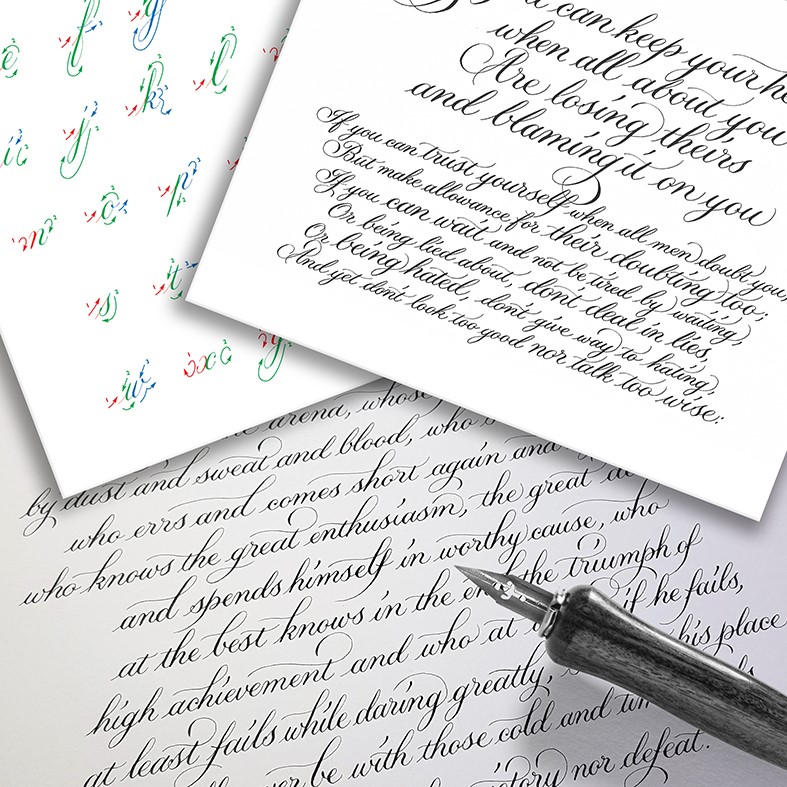 f
k
l
ic
j
n
o
p
s
t
w
x
y
can keep your
when all about you
Are losing theirs
and blaming it on you
If you can trust yourself when all men doubt you,
But make allowance for their doubting too;
If you can wait and not be tired by waiting,
Or being lied about, don't deal in lies,
Or being hated, don't give way to hating,
And yet don't look too good nor talk too wise:
arena, whose
by dust and sweat and blood, who
who errs and comes short again and
who knows the great enthusiasm, the great
and spends himself in worthy cause, who
at the best knows in the the triumph of
high achievement and who at if he fails,
at least fails while daring greatly, his place
be with those cold and
nor defeat.